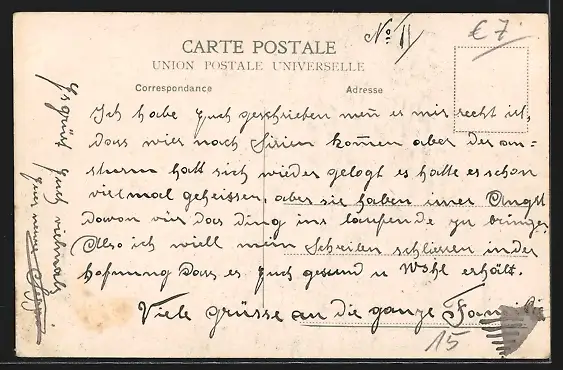 CARTE POSTALE
UNION POSTALE UNIVERSELLE
Correspondance
Adresse
No 11
€ 7.
Ich habe Euch geschrieben wen es mir recht ist,
dass wier nach Sirien kommen aber der an-
sturm hatt sich wieder gelegt es hatte es schon
vielmal geheissen, aber sie haben imer Angst
Davon vür das ding ins laufende zu bringen
Also ich will mein Schreiben schliesen in der
hofnung Dass es Euch gesund u Wohl erhält.
Viele grüsse an die ganze Familie
15
Es grüst Euch vielmals
Euer